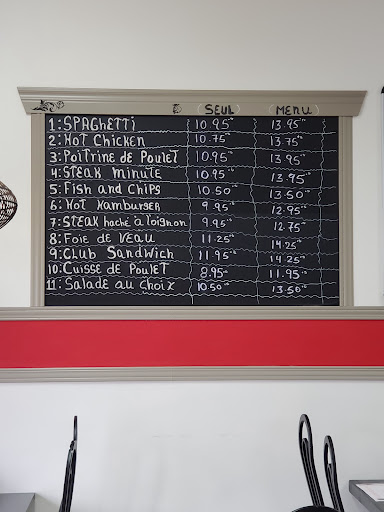 SEUL MENU
1: SPAGHETTI 10.95 13.95
2: HOT CHICKEN 10.75 13.75
3: POITRINE DE POULET 10.95 13.95
4: STEAK MINUTE 10.95 13.95
5: FISH AND CHIPS 10.50 13.50
6: HOT HAMBURGER 9.95 12.95
7: STEAK haché à l'oignon 9.95 12.75
8: FOIE DE VEAU 11.25 14.25
9: CLUB SANDWICH 11.95 14.25
10: CUISSE DE POULET 8.95 11.95
11: SALADE AU CHOIX 10.50 13.50